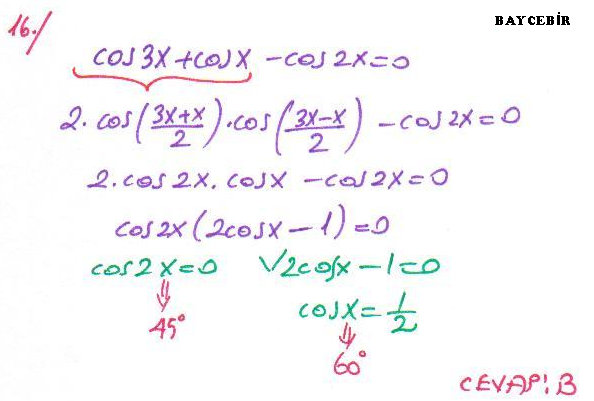 16./
BAYCEBİR
cos3x+cosx -cos2x=0
2.cos(3x+x/2).cos(3x-x/2) -cos2x=0
2.cos2x.cosx -cos2x=0
cos2x(2cosx-1)=0
cos2x=0 V 2cosx-1=0
⇓ cosx=1/2
45° ⇓
60°
CEVAP:B